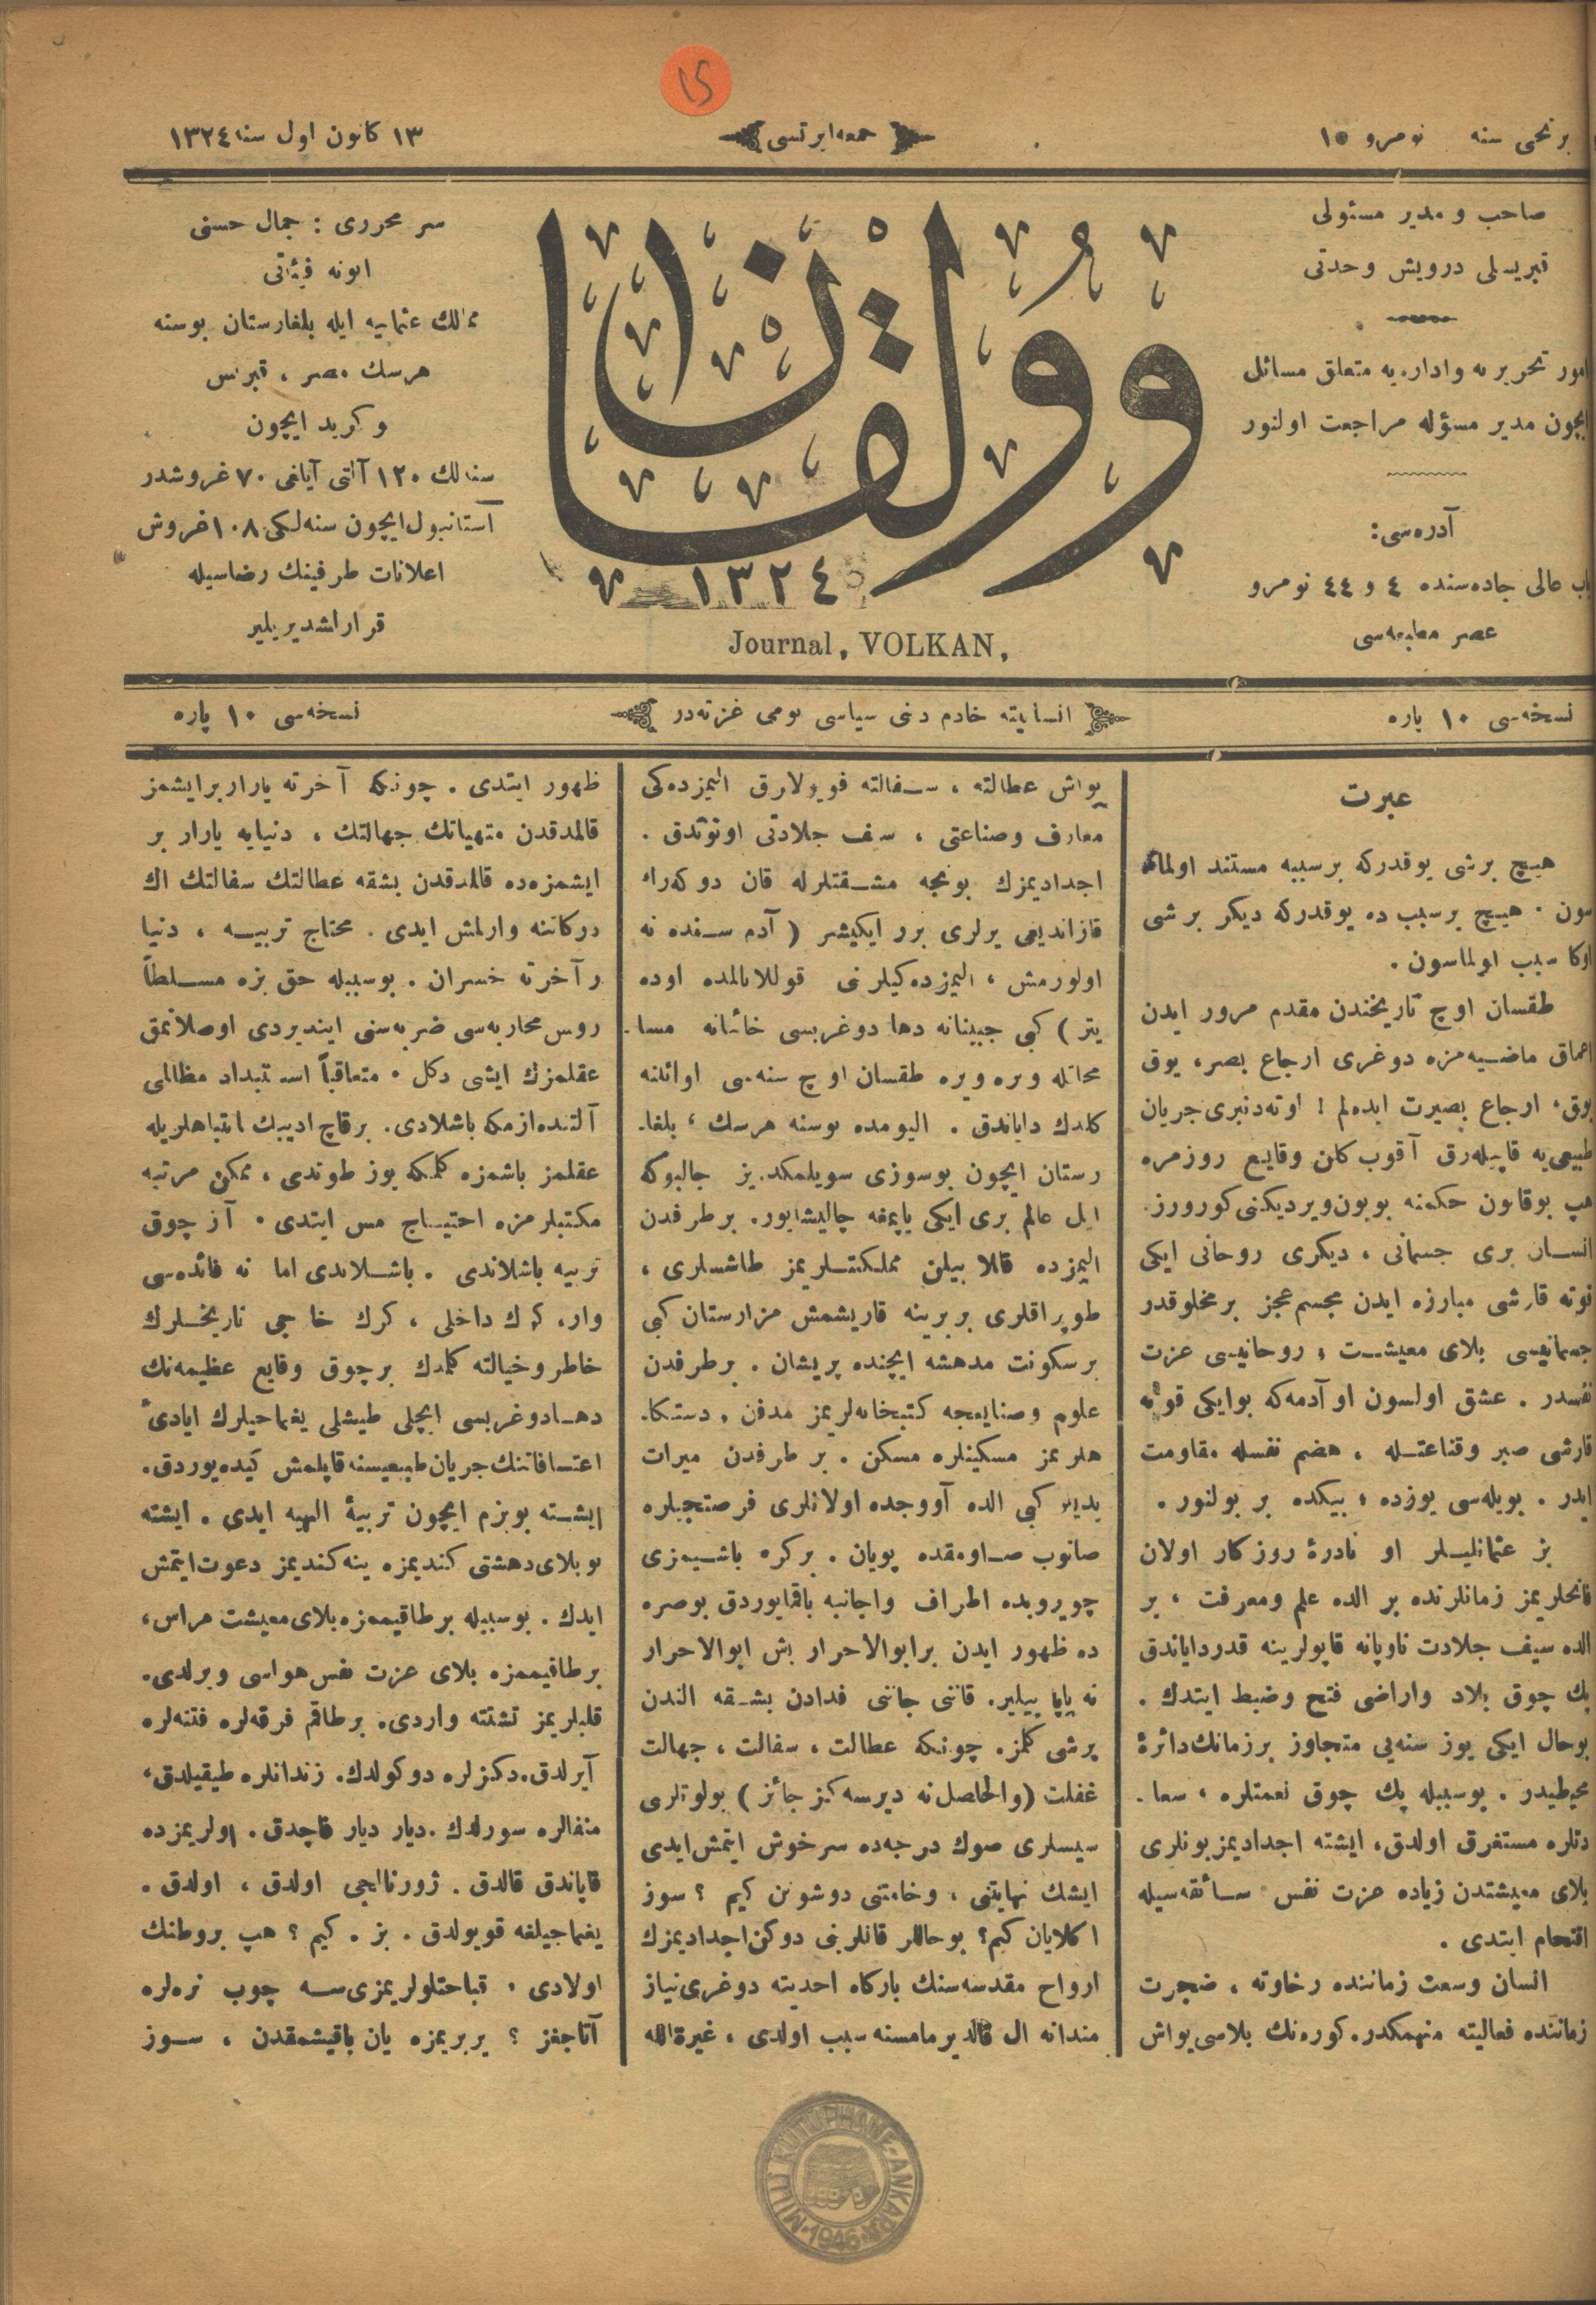 15
برنجی سنه نومرو ١٥
جمعه ایرتسی
١٣ کانون اول سنه ١٣٢٤
صاحب و مدیر مسئولی
قبریسلی درویش وحدتی
امور تحریریه و اداره یه متعلق مسائل
ایچون مدیر مسؤله مراجعت اولنور
آدره سی:
باب عالی جاده سنده ٤ و ٤٤ نومرو
عصر مطبعه سی
وولقان
١٣٢٤
Journal, VOLKAN,
سر محرری : جمال حسنی
ابونه فیئاتی
ممالك عثمانیه ایله بلغارستان بوسنه
هرسك مصر ، قبریس
و کرید ایچون
سنه لك ١٢٠ آلتی آیلغی ٧٠ غروشدر
آستانبول ایچون سنه لکی ١٠٨ غروش
اعلانات طرفینك رضاسیله
قرارلشدیریلیر
نسخه سی ١٠ پاره
انسانیته خادم دینی سیاسی یومی غزته در
نسخه سی ١٠ پاره
عبرت
هیچ برشی یوقدرکه برسببه مستند اولما
سون . هیچ برسبب ده یوقدرکه دیکر برشی
اوکا سبب اولماسون .
طقسان اوچ تاریخندن مقدم مرور ایدن
اعماق ماضیه مزه دوغری ارجاع بصر، یوق
یوق، ارجاع بصیرت ایده لم ! اوته دنبری جریان
طبیعی یه قاپیله رق آقوب کلن وقایع روزمره
هپ بوقانون حکمنه بویون ویردیکنی کورورز.
انسان بری جسمانی ، دیکری روحانی ایکی
قوته قارشی مبارزه ایدن مجسم عجز بر مخلوقدر
جسمانیسی بلای معیشت ، روحانیسی عزت
نفسدر . عشق اولسون او آدمه که بو ایکی قوته
قارشی صبر وقناعتله ، هضم نفسله مقاومت
ایدر . بویله سی یوزده ، بیکده بر بولنور .
بز عثمانلیلر او نادرۀ روزکار اولان
فاتحلریمز زمانلرنده بر الده علم ومعرفت ، بر
الده سیف جلادت ناویانه قاپولرینه قدر دایاندق
پك چوق بلاد واراضی فتح وضبط ایتدك .
بوحال ایکی یوز سنه یی متجاوز برزمانك دائرۀ
محیطیدر . بوسببله پك چوق نعمتلره ، سعا .
دتلره مستغرق اولدق، ایشته اجدادیمز بونلری
بلای معیشتدن زیاده عزت نفس سائقه سیله
اقتحام ایتدی .
انسان وسعت زماننده رخاوته ، ضجرت
زماننده فعالیته منهمکدر. کوره نك بلاسی یواش
یواش عطالته ، سفالته قویولارق الیمزده کی
معارف وصناعتی ، سیف جلادتی اونوتدق .
اجدادیمزك بونجه مشقتلرله قان دوکه رك
قازاندیغی یرلری برر ایکیشر ( آدم سنده نه
اولورمش ، الیمزده کیلرنی قوللانالمده اوده
یتر ) کبی جبینانه دها دوغریسی خائنانه مسا.
محاتله ویره ویره طقسان اوچ سنه سی اوائلنه
کلدك دایاندق . الیومده بوسنه هرسك ، بلغا.
رستان ایچون بوسوزی سویلمکده یز حالبوکه
ایل عالم بری ایکی یاپمغه چالیشایور. بر طرفدن
الیمزده قالا بیلن مملکتلریمز طاشلری ،
طوپراقلری بربرینه قاریشمش مزارستان کبی
برسکونت مدهشه ایچنده پریشان . برطرفدن
علوم وصنایعجه کتبخانه لریمز مدفن ، دستکا.
هلریمز مسکینلره مسکن . بر طرفدن میراث
یدی کبی الده آووجده اولانلری فرصتجیلره
صاتوب صاومقده پویان . برکره باشیمزی
چویروبده اطراف واجانبه باقمایوردق بوصره
ده ظهور ایدن برابوالاحرار بش ابوالاحرار
نه یاپا بیلیر. قاننی جاننی فدادن بشقه الندن
برشی کلمز. چونکه عطالت ، سفالت ، جهالت
غفلت (والحاصل نه دیرسه کز جائز ) بولوتلری
سیسلری صوك درجه ده سرخوش ایتمش ایدی
ایشك نهایتنی ، وخامتنی دوشونن کیم ؟ سوز
اکلایان کیم؟ بوحاللر قانلرینی دوکن اجدادیمزك
ارواح مقدسه سنك بارکاه احدیته دوغری نیاز
مندانه ال قالدیرمامسنه سبب اولدی ، غیرةالله
ظهور ایتدی . چونکه آخرته یارار برایشمز
قالمدقدن منهیاتك جهالتك ، دنیایه یارار بر
ایشمزده قالمدقدن بشقه عطالتك سفالتك اك
درکاتنه وارلمش ایدی . محتاج تربیه ، دنیا
و آخرته خسران . بوسببله حق بزه مسلطاً
روس محاربه سی ضربه سنی ایندیردی اوصلانمق
عقلمزك ایشی دکل . متعاقباً استبداد مظالمی
آلتنده ازمکه باشلادی. برقاچ ادیبك انتباهلریله
عقلمز باشمزه کلمکه یوز طوتدی ، ممکن مرتبه
مکتبلرمزه احتیاج مس ایتدی . آز چوق
تربیه باشلاندی . باشلاندی اما نه فائده سی
وار، کرك داخلی ، کرك خارجی تاریخلرك
خاطر وخیالنه کلمدك برچوق وقایع عظیمه نك
دها دوغریسی ایچلی طیشلی یغماجیلرك ایادیء
اعتسافاتنك جریان طبیعیسنه قاپلمش کیده یوردق.
ایشته بوبزم ایچون تربیۀ الهیه ایدی . ایشته
بو بلای دهشتی کندیمزه ینه کندیمز دعوت ایتمش
ایدك . بوسببله برطاقیممزه بلای معیشت هراس،
برطاقیممزه بلای عزت نفس هواسی ویرلدی.
قلبلریمز تشتته واردی. برطاقم فرقه لره فتنه لره
آیرلدق. دکزلره دوکولدك. زندانلره طیقیلدق،
منفالره سورلدك . دیار دیار قاچدق . اولریمزده
قاپاندق قالدق . ژورنالجی اولدق ، اولدق .
یغماجیلغه قویولدق . بز . کیم ؟ هپ بروطنك
اولادی . قباحتلولریمزی سه چوب نره لره
آتاجغز ؟ بربریمزه یان باقیشمقدن ، سوز
MİLLÎ KÜTÜPHANE - ANKARA
1946